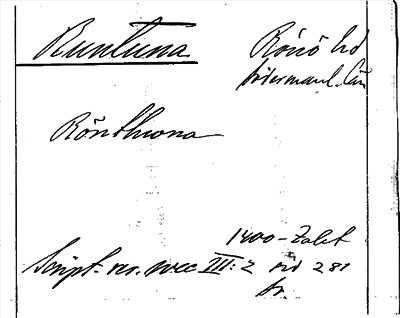 Runtuna Rönö hd
Södermanl. län
Rönthuna
1400-talet
Script. rer. svec III: 2 sid 281
tr.